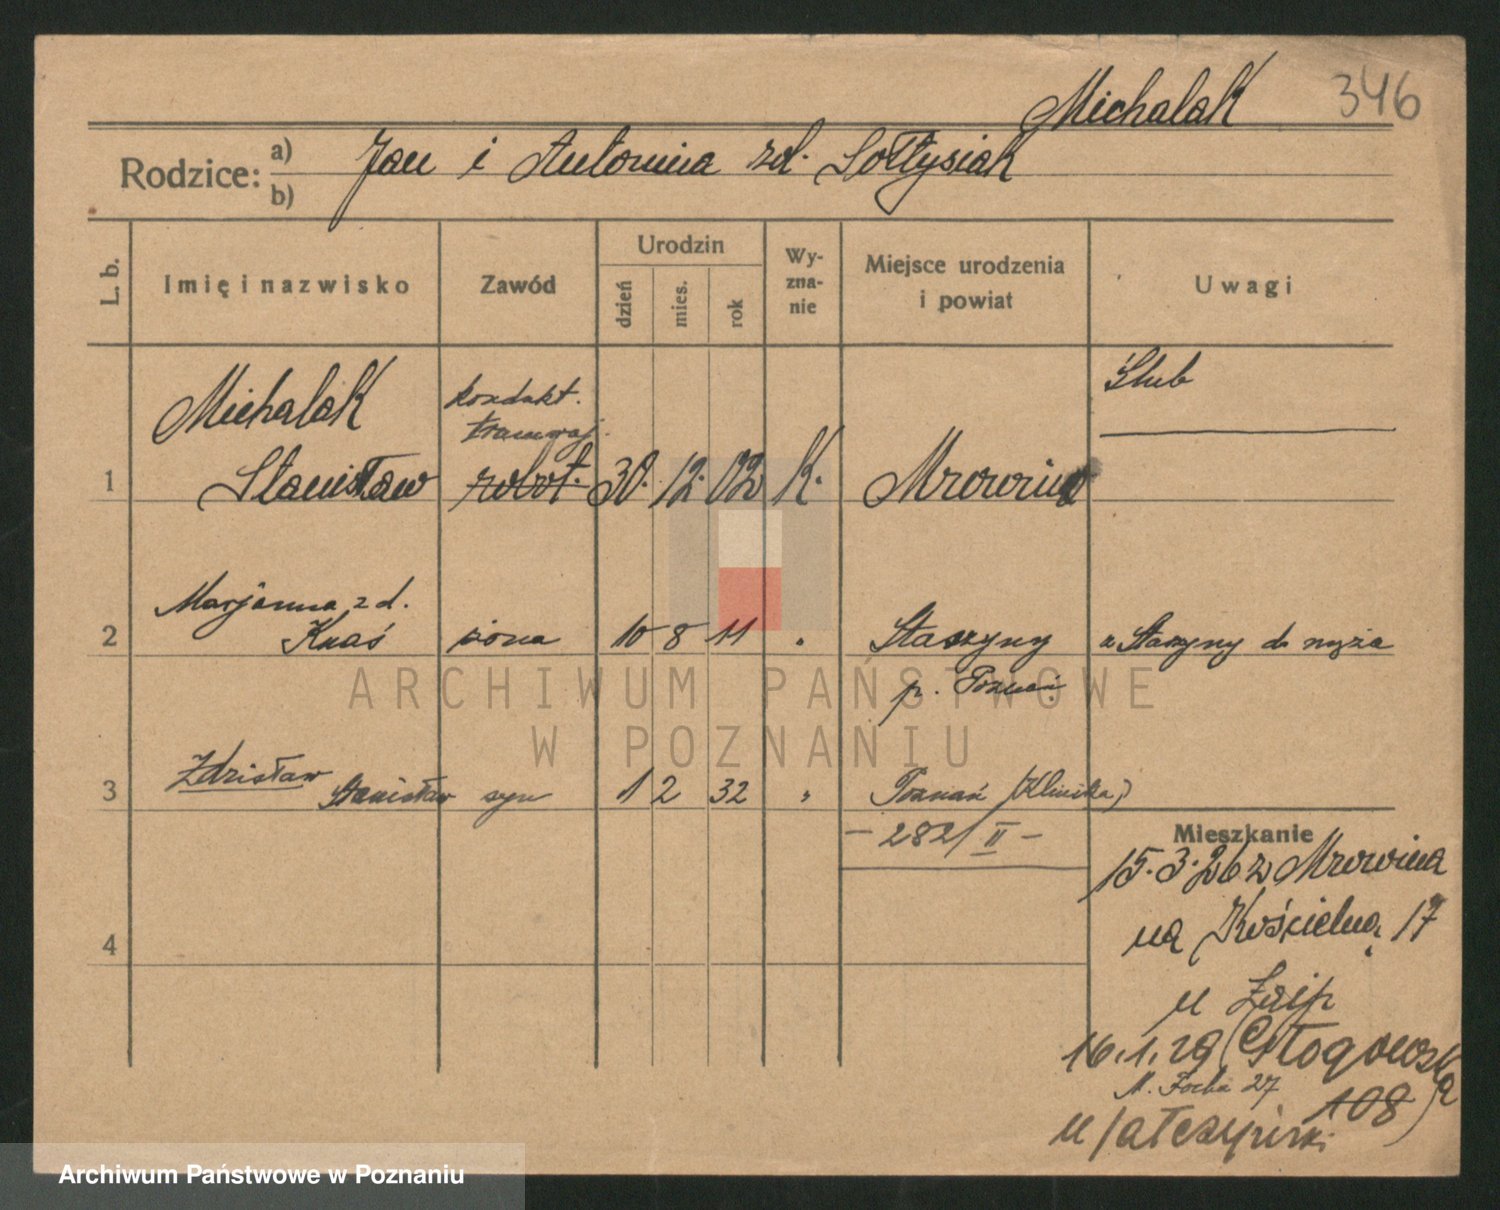 Michalak 346
Rodzice: a) b) Jan i Antonina zd. Sołtysiak
L. b. Imię i nazwisko Zawód Urodzin dzień mies. rok Wy-zna-nie Miejsce urodzenia i powiat Uwagi
Michalak kondukt. Ślub
tramwaj.
1 Stanisław robot. 30. 12. 02 K. Mrowino
Marjanna z d.
2 Knaś żona 10 8 11 " Staszyny z Staszyny do męża
p. Poznań
3 Zdzisław Stanisław syn 1 2 32 " Poznań (Klinika)
- 282/II -
Mieszkanie
15.3.26 z Mrowina
4 na Kościelną 17
u
16.1.29 (Głogowska
M. Focha 27 108)
u
ARCHIWUM PAŃSTWOWE
W POZNANIU
Archiwum Państwowe w Poznaniu